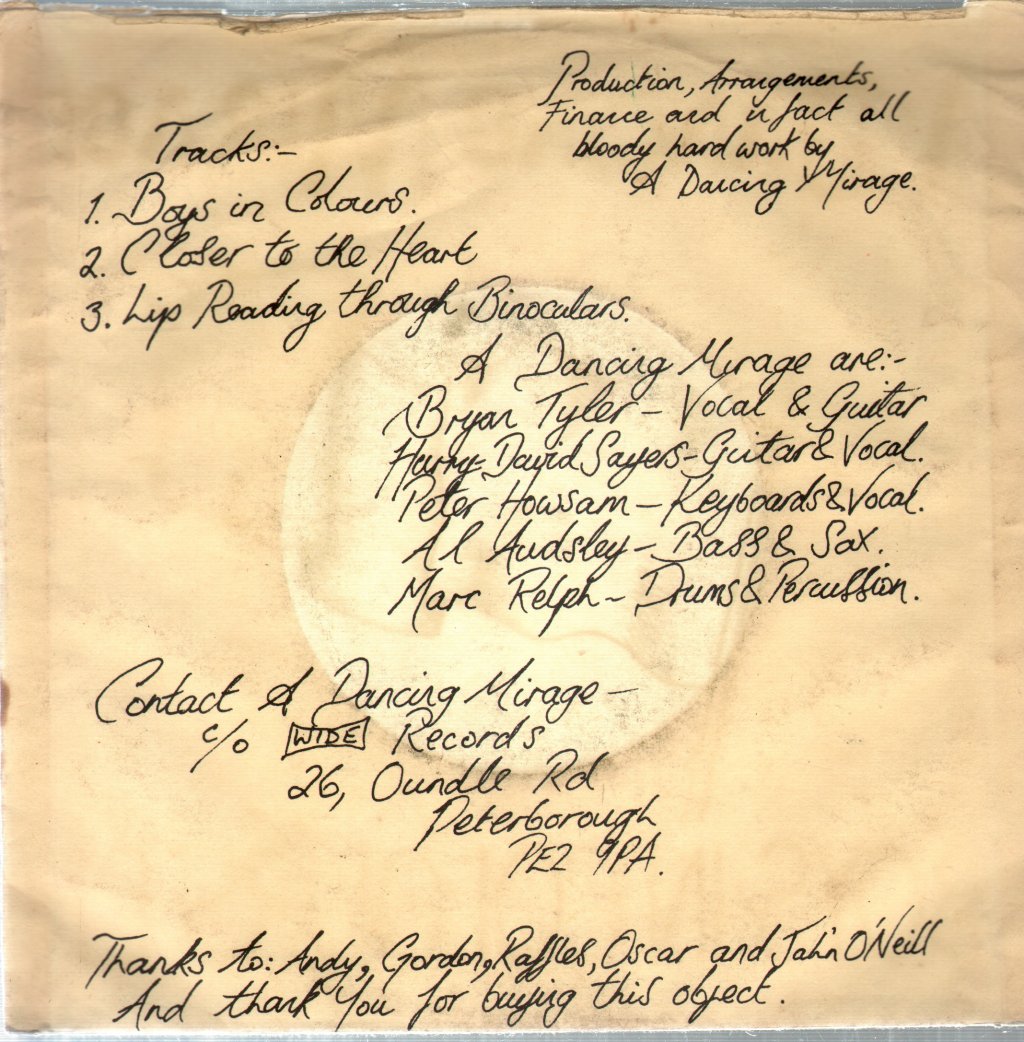 Production, Arrangements,
Finance and in fact all
bloody hard work by
A Dancing Mirage.
Tracks:-
1. Boys in Colours.
2. Closer to the Heart
3. Lip Reading through Binoculars.
A Dancing Mirage are:-
Bryan Tyler - Vocal & Guitar
Harry David Sayers - Guitar & Vocal.
Peter Howsam - Keyboards & Vocal.
Al Audsley - Bass & Sax.
Marc Relph - Drums & Percussion.
Contact A Dancing Mirage -
c/o WIDE Records
26, Oundle Rd
Peterborough
PE2 9PA.
Thanks to: Andy, Gordon, Raffles, Oscar and Jah'n O'Neill
And thank You for buying this object.